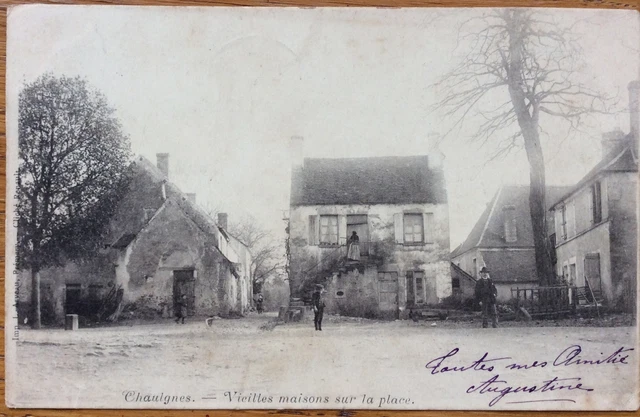 Chaulgnes. — Vieilles maisons sur la place.
Toutes mes Amitié
Augustine